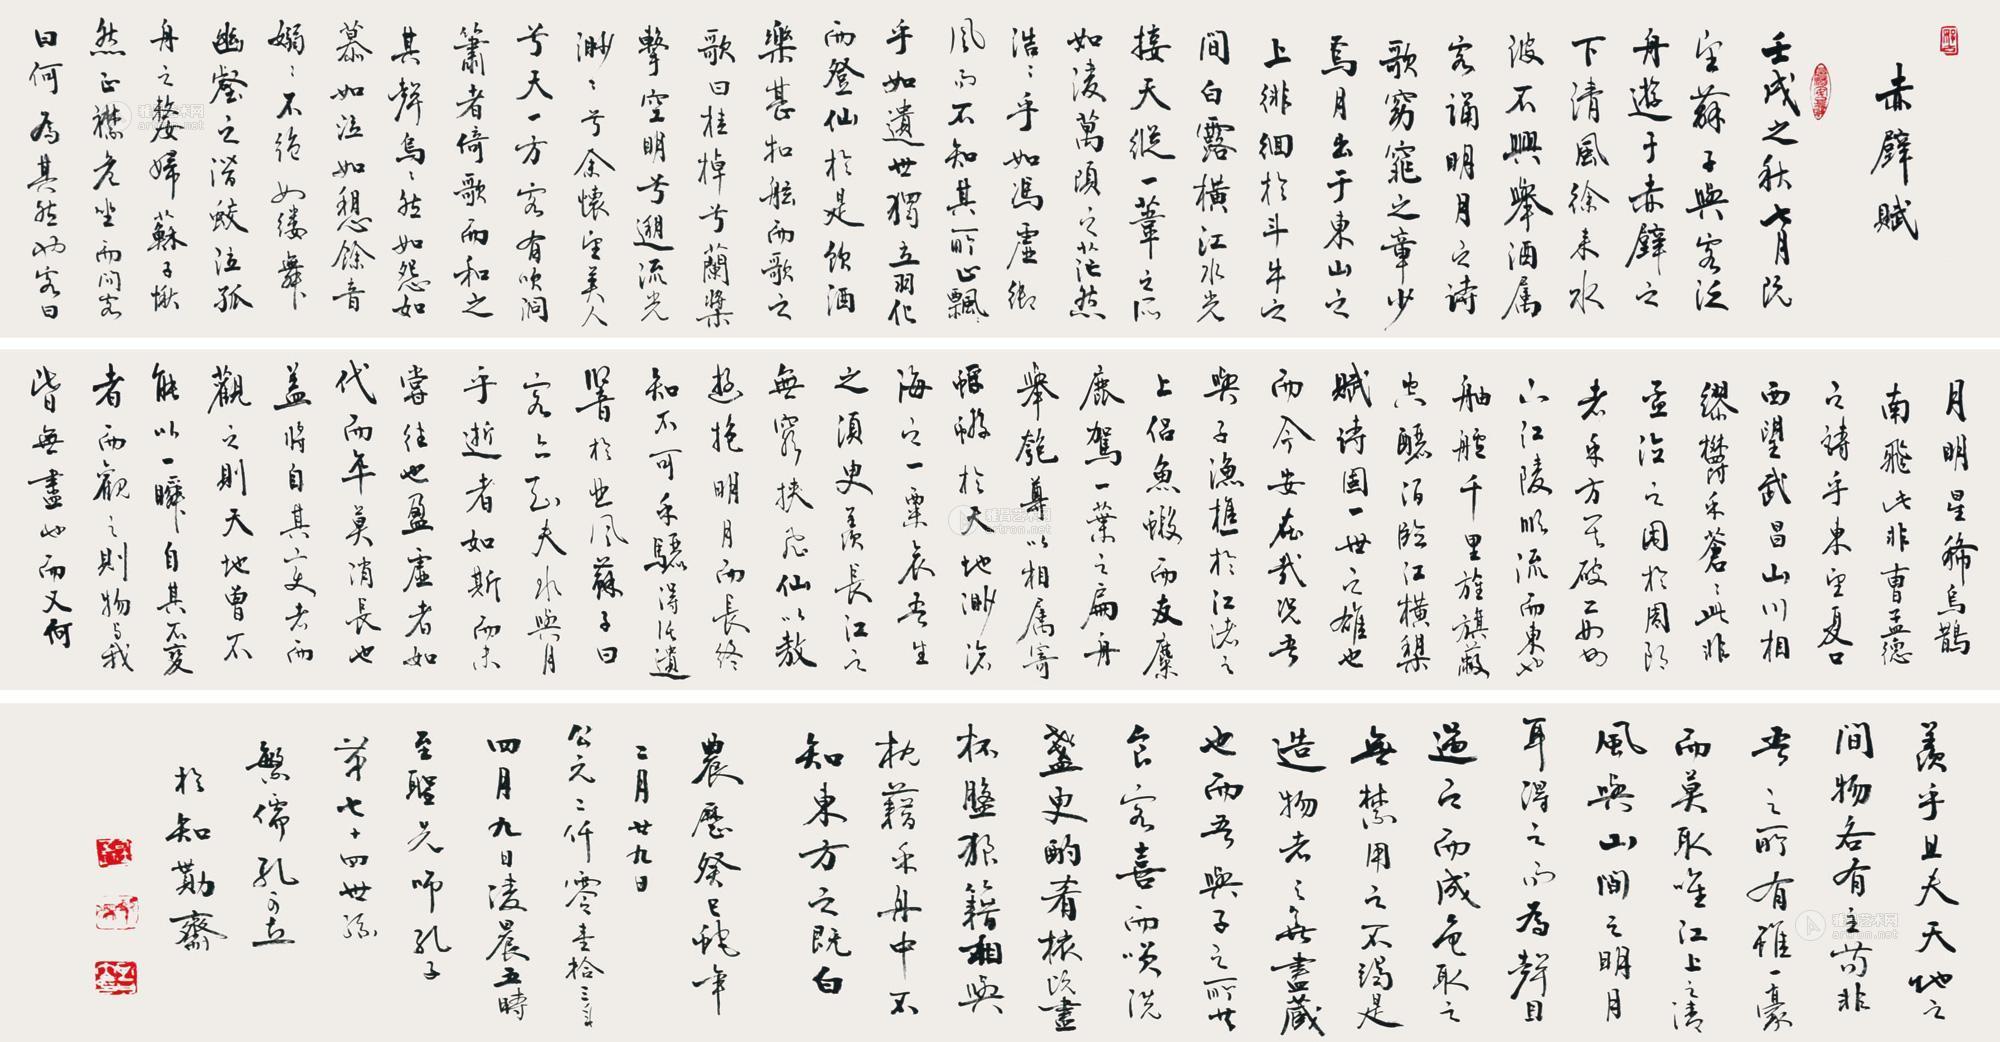 赤壁賦
壬戌之秋七月既
望蘇子與客泛
舟遊于赤壁之
下清風徐来水
波不興舉酒属
客誦明月之诗
歌窈窕之章少
焉月出于東山之
上徘徊於斗牛之
間白露橫江水光
接天縱一葦之所
如凌萬頃之茫然
浩浩乎如馮虛御
风而不知其所止飄飄
乎如遺世獨立羽化
而登仙於是飲酒
樂甚扣舷而歌之
歌曰桂棹兮蘭槳
擊空明兮遡流光
渺渺兮余懷望美人
兮天一方客有吹洞
簫者倚歌而和之
其聲烏烏然如怨如
慕如泣如愬餘音
嫋嫋不絕如缕舞
幽壑之潛蛟泣孤
舟之嫠婦蘇子愀
然正襟危坐而問客
曰何為其然也客曰
月明星稀烏鵲
南飛此非曹孟德
之詩乎東望夏口
西望武昌山川相
繆鬱乎蒼蒼此非
孟德之困於周郎
者乎方其破荆州
下江陵順流而東也
舳艫千里旌旗蔽
空釃酒臨江橫槊
賦诗固一世之雄也
而今安在哉况吾
與子漁樵於江渚之
上侶魚蝦而友麋
鹿駕一葉之扁舟
舉匏尊以相属寄
蜉蝣於天地渺滄
海之一粟哀吾生
之須臾羨長江之
無窮挾飛仙以敖
遊抱明月而長終
知不可乎驟得托遺
響於悲风蘇子曰
客亦知夫水與月
乎逝者如斯而未
嘗往也盈虛者如
代而卒莫消長也
蓋將自其变者而
觀之則天地曾不
能以一瞬自其不变
者而觀之則物与我
皆無盡也而又何
羨乎且夫天地之
間物各有主苟非
吾之所有雖一豪
而莫取唯江上之清
風與山間之明月
耳得之而為聲目
遇之而成色取之
無禁用之不竭是
造物者之無盡藏
也而吾與子之所共
食客喜而笑洗
盞更酌肴核既盡
杯盤狼籍相與
枕藉乎舟中不
知東方之既白
農歷癸巳蛇年
二月廿九日
公元二仟零壹拾三年
四月九日凌晨五時
至聖先師孔子
第七十四世孫
繁儒孔可立
於知勤齋
雅昌艺术网
artron.net
雅昌艺术网
artron.net
雅昌艺术网
artron.net